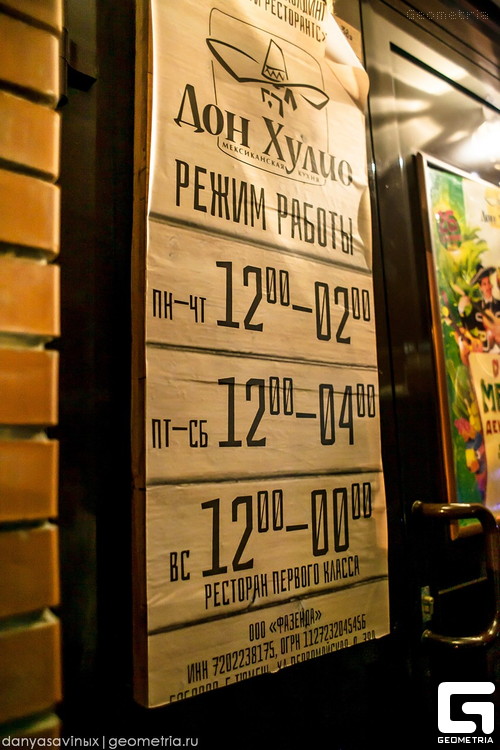 Geometria
РЕСТОРАНТС
Дон Хулио
МЕКСИКАНСКАЯ КУХНЯ
РЕЖИМ РАБОТЫ
ПН-ЧТ 12 00 - 02 00
ПТ-СБ 12 00 - 04 00
ВС 12 00 - 00 00
РЕСТОРАН ПЕРВОГО КЛАССА
ООО «ФАЗЕНДА»
ИНН 7202238175, ОГРН 1127232045456
Г. ТЮМЕНЬ, УЛ. ПЕРВОМАЙСКАЯ
danyasavinых | geometria.ru
GEOMETRIA